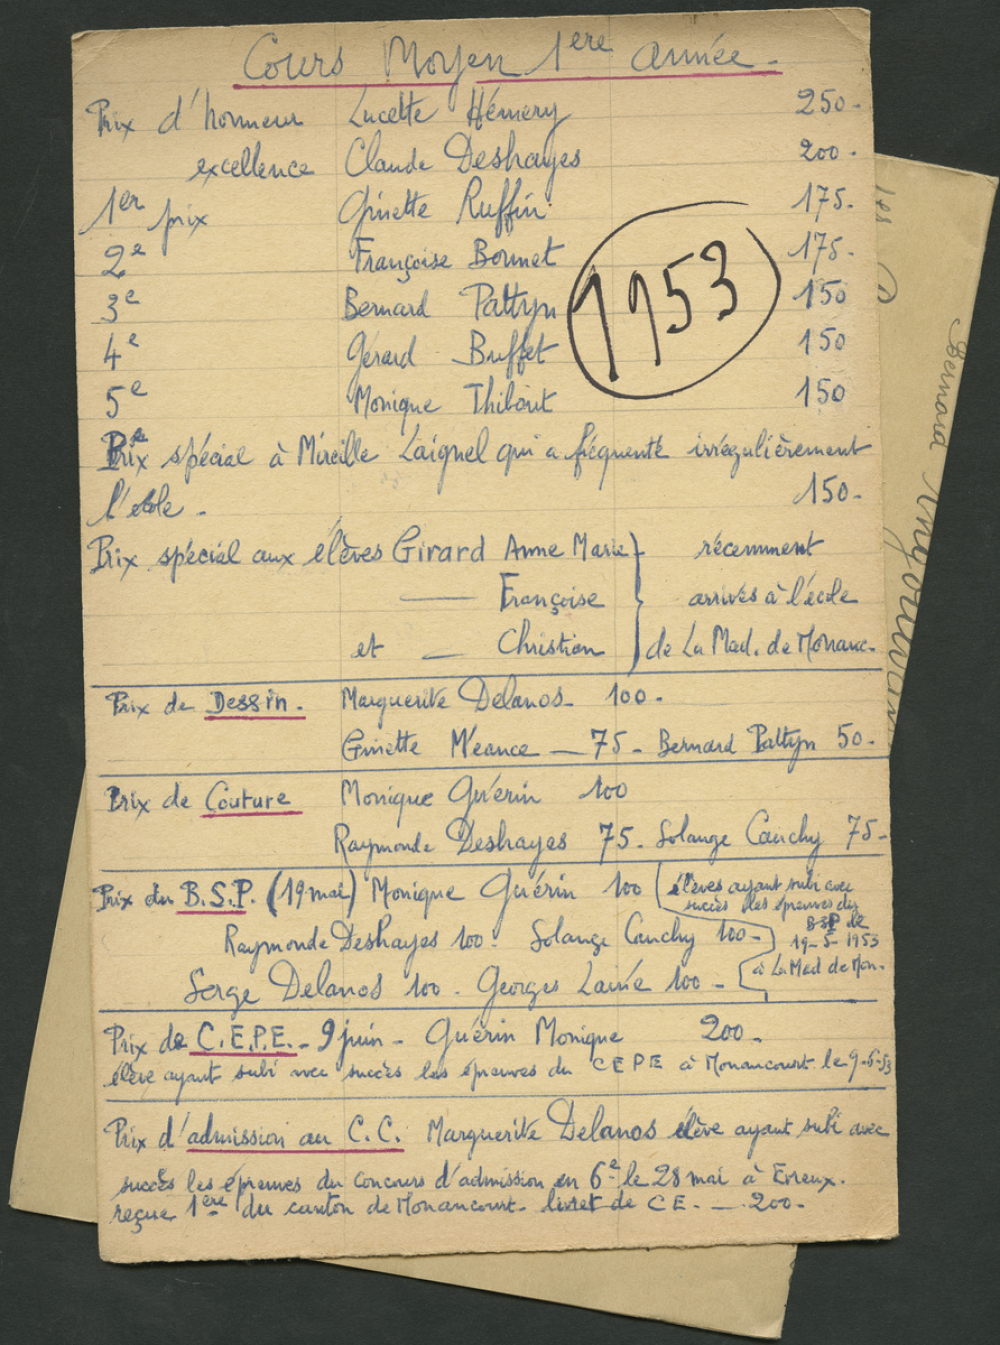 Cours Moyen 1ère année.
Prix d'honneur Lucette Hémery 250.
excellence Claude Deshayes 200.
1er prix Ginette Ruffin 175.
2e Françoise Bonnet 175.
3e Bernard Pattyn 150
1953
4e Gérard Buffet 150
5e Monique Thibout 150
Prix spécial à Mireille Laignel qui a fréquenté irrégulièrement
l'école. 150.
Prix spécial aux élèves Girard Anne Marie } récemment
— Françoise } arrivés à l'école
et — Christian } de La Mad. de Nonanc.
Prix de Dessin. Marguerite Delanos 100.
Ginette Méance — 75 - Bernard Pattyn 50.
Prix de Couture Monique Guérin 100
Raymonde Deshayes 75. Solange Cauchy 75-
Prix du B.S.P. (19 mai) Monique Guérin 100 (élèves ayant subi avec
succès les épreuves du
BSP le
Raymonde Deshayes 100. Solange Cauchy 100-
19-5-1953
à La Mad de Non.
Serge Delanos 100. Georges Lainé 100 -
Prix de C.E.P.E. - 9 juin - Guérin Monique 200.
élève ayant subi avec succès les épreuves du CEPE à Nonancourt le 9-6-53
Prix d'admission au C.C. Marguerite Delanos élève ayant subi avec
succès les épreuves du concours d'admission en 6e le 28 mai à Evreux.
reçue 1ère du canton de Nonancourt. livret de CE. — 200.
Bernard